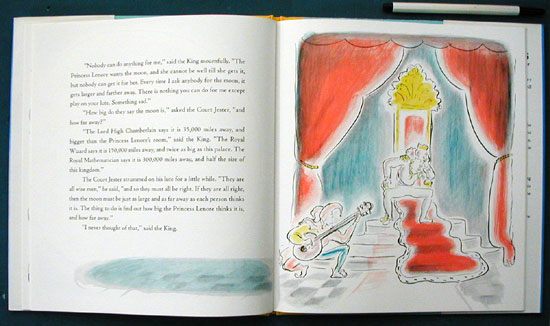 "Nobody can do anything for me," said the King mournfully. "The
Princess Lenore wants the moon, and she cannot be well till she gets it,
but nobody can get it for her. Every time I ask anybody for the moon, it
gets larger and farther away. There is nothing you can do for me except
play on your lute. Something sad."
"How big do they say the moon is," asked the Court Jester, "and
how far away?"
"The Lord High Chamberlain says it is 35,000 miles away, and
bigger than the Princess Lenore's room," said the King. "The Royal
Wizard says it is 150,000 miles away, and twice as big as this palace. The
Royal Mathematician says it is 300,000 miles away, and half the size of
this kingdom."
The Court Jester strummed on his lute for a little while. "They are
all wise men," he said, "and so they must all be right. If they are all right,
then the moon must be just as large and as far away as each person thinks
it is. The thing to do is find out how big the Princess Lenore thinks it is,
and how far away."
"I never thought of that," said the King.